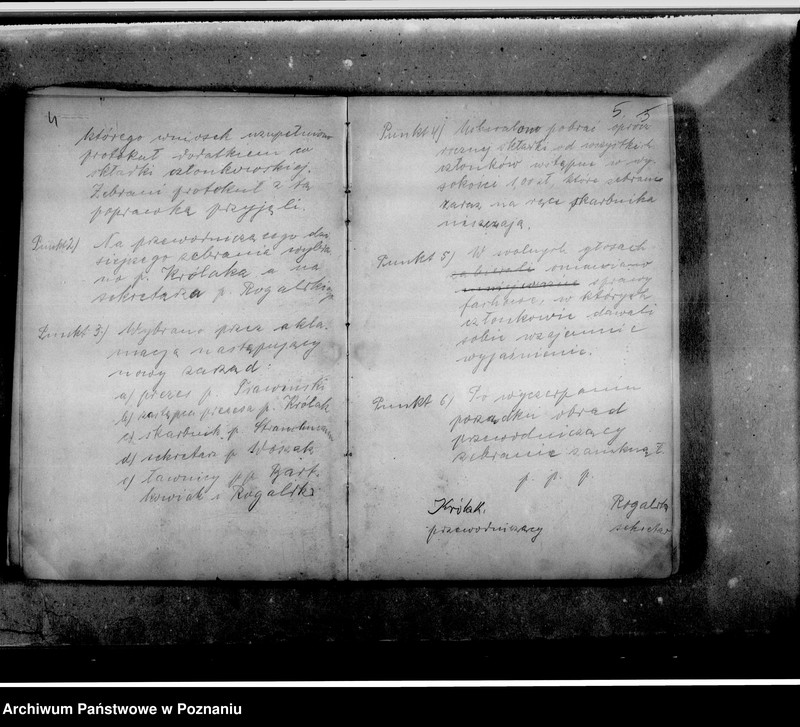 4
którego wniosek uzupełniono
protokuł dodatkiem co
składki członkowskiej.
Zebrani protokuł z tą
poprawką przyjęli.
Punkt 2) Na przewodniczącego dzi
siejszego zebrania wybra
no p. Królaka a na
sekretarza p. Rogalskiego
Punkt 3) Wybrano przez akla
macją następujący
nowy zarząd:
a) prezes p.
b) zastępca prezesa p. Królak
c) skarbnik p.
d) sekretarz p. Woszak
e) ławnicy pp. Bart
kowiak i Rogalski
5. 5
Punkt 4) Uchwalono pobrać oprócz
składki od wszystkich
członków wstępne w wy
sokości 1.00 zł, które zebrani
zaraz na ręce skarbnika
uiszczają.
Punkt 5) W wolnych głosach
zabierali omawiano
sprawy
fachowe, w których
członkowie dawali
sobie wzajemnie
wyjaśnienie.
Punkt 6) Po wyczerpaniu
porządku obrad
przewodniczący
zebranie zamknął.
p. p. p.
Królak. Rogalski
przewodniczący sekretarz
Archiwum Państwowe w Poznaniu